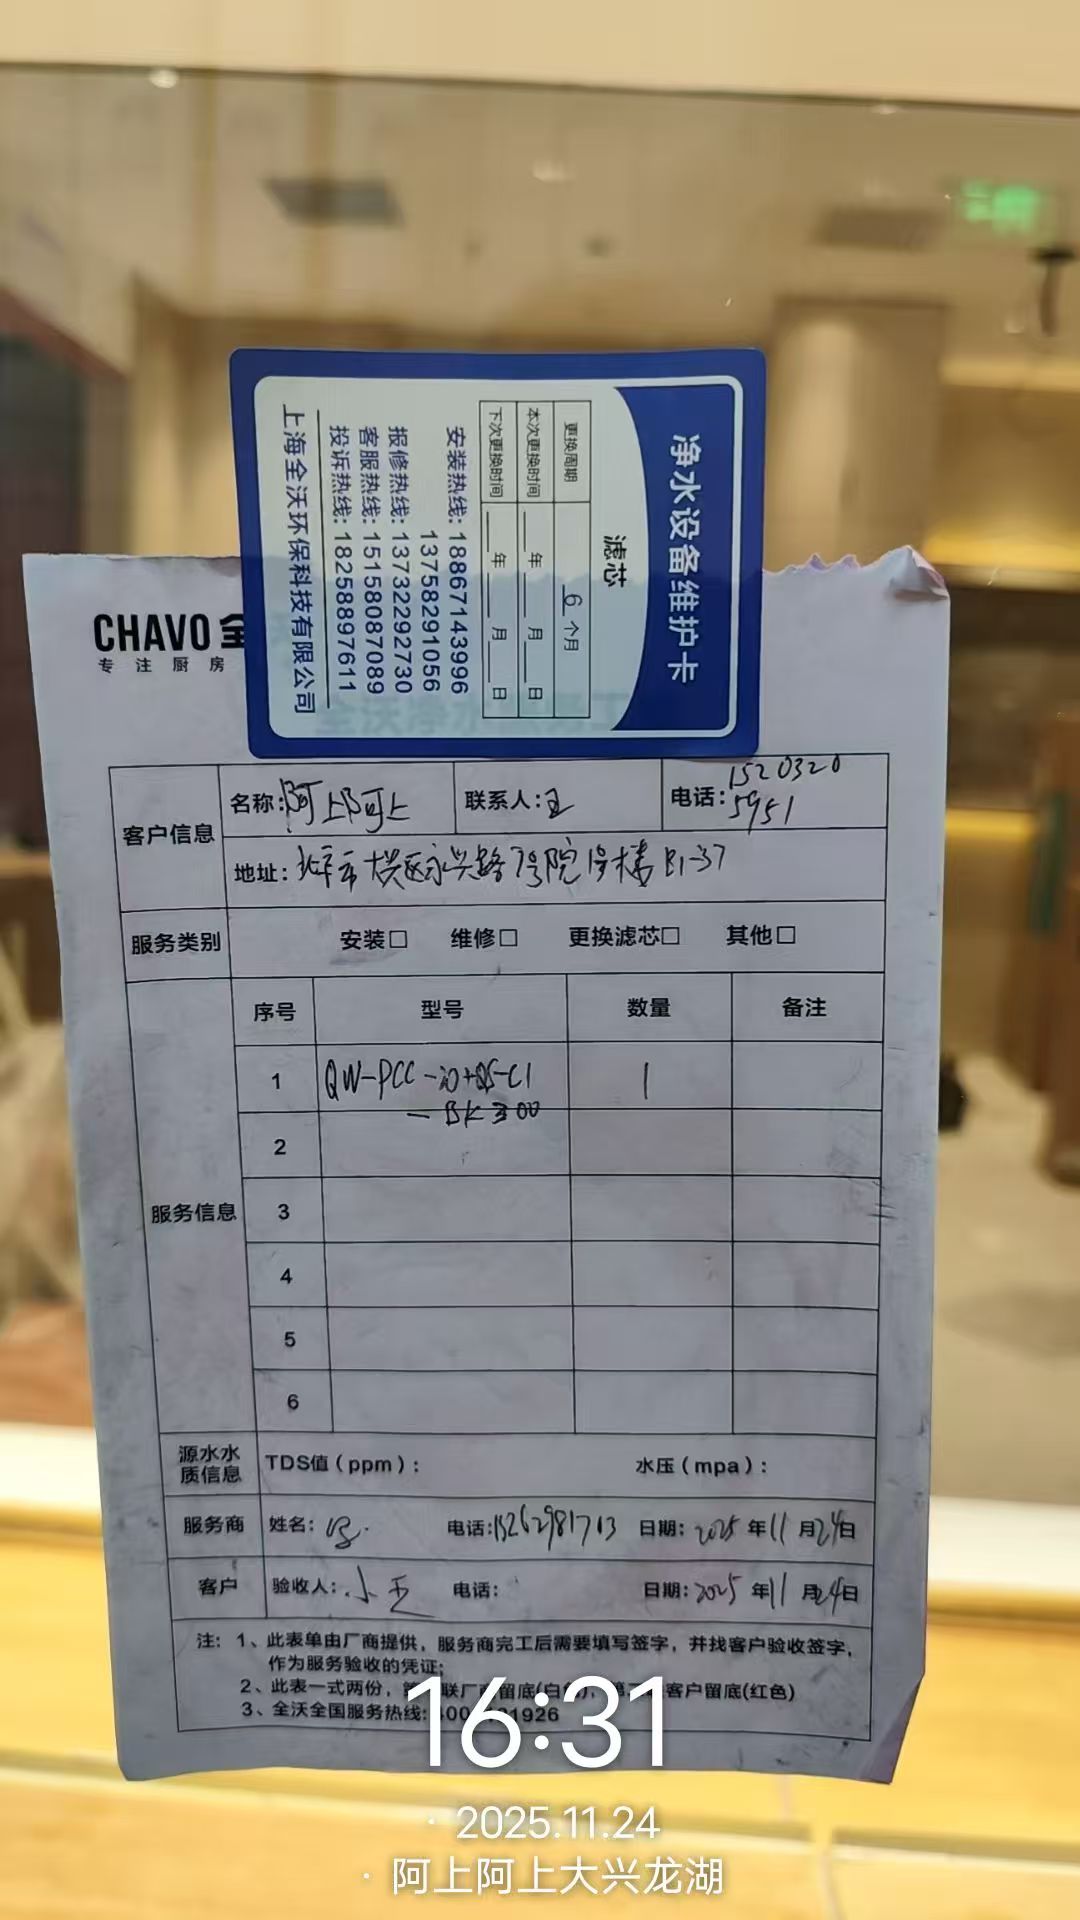 净水设备维护卡
滤芯
更换周期 6 个月
本次更换时间 年 月 日
下次更换时间 年 月 日
安装热线: 18867143996
13758291056
报修热线: 13732292730
客服热线: 15158087089
投诉热线: 18258897611
上海全沃环保科技有限公司
CHAVO 全
专 注 厨 房
客户信息 名称: 阿上阿上 联系人: 王 电话: 1520320
5951
地址: 北京市大兴区永兴路7号院1号楼B1-37
服务类别 安装□ 维修□ 更换滤芯□ 其他□
服务信息 序号 型号 数量 备注
1 QW-PCC-20+QS-C1 1
-BK300
2
3
4
5
6
源水水质信息 TDS值(ppm): 水压(mpa):
服务商 姓名: 电话: 15262981713 日期: 2025 年 11 月 24 日
客户 验收人: 小王 电话: 日期: 2025 年 11 月 24 日
注: 1、此表单由厂商提供,服务商完工后需要填写签字,并找客户验收签字,
作为服务验收的凭证;
2、此表一式两份, 联厂商留底(白色), 客户留底(红色)
3、全沃全国服务热线: 1926
16:31
2025.11.24
· 阿上阿上大兴龙湖